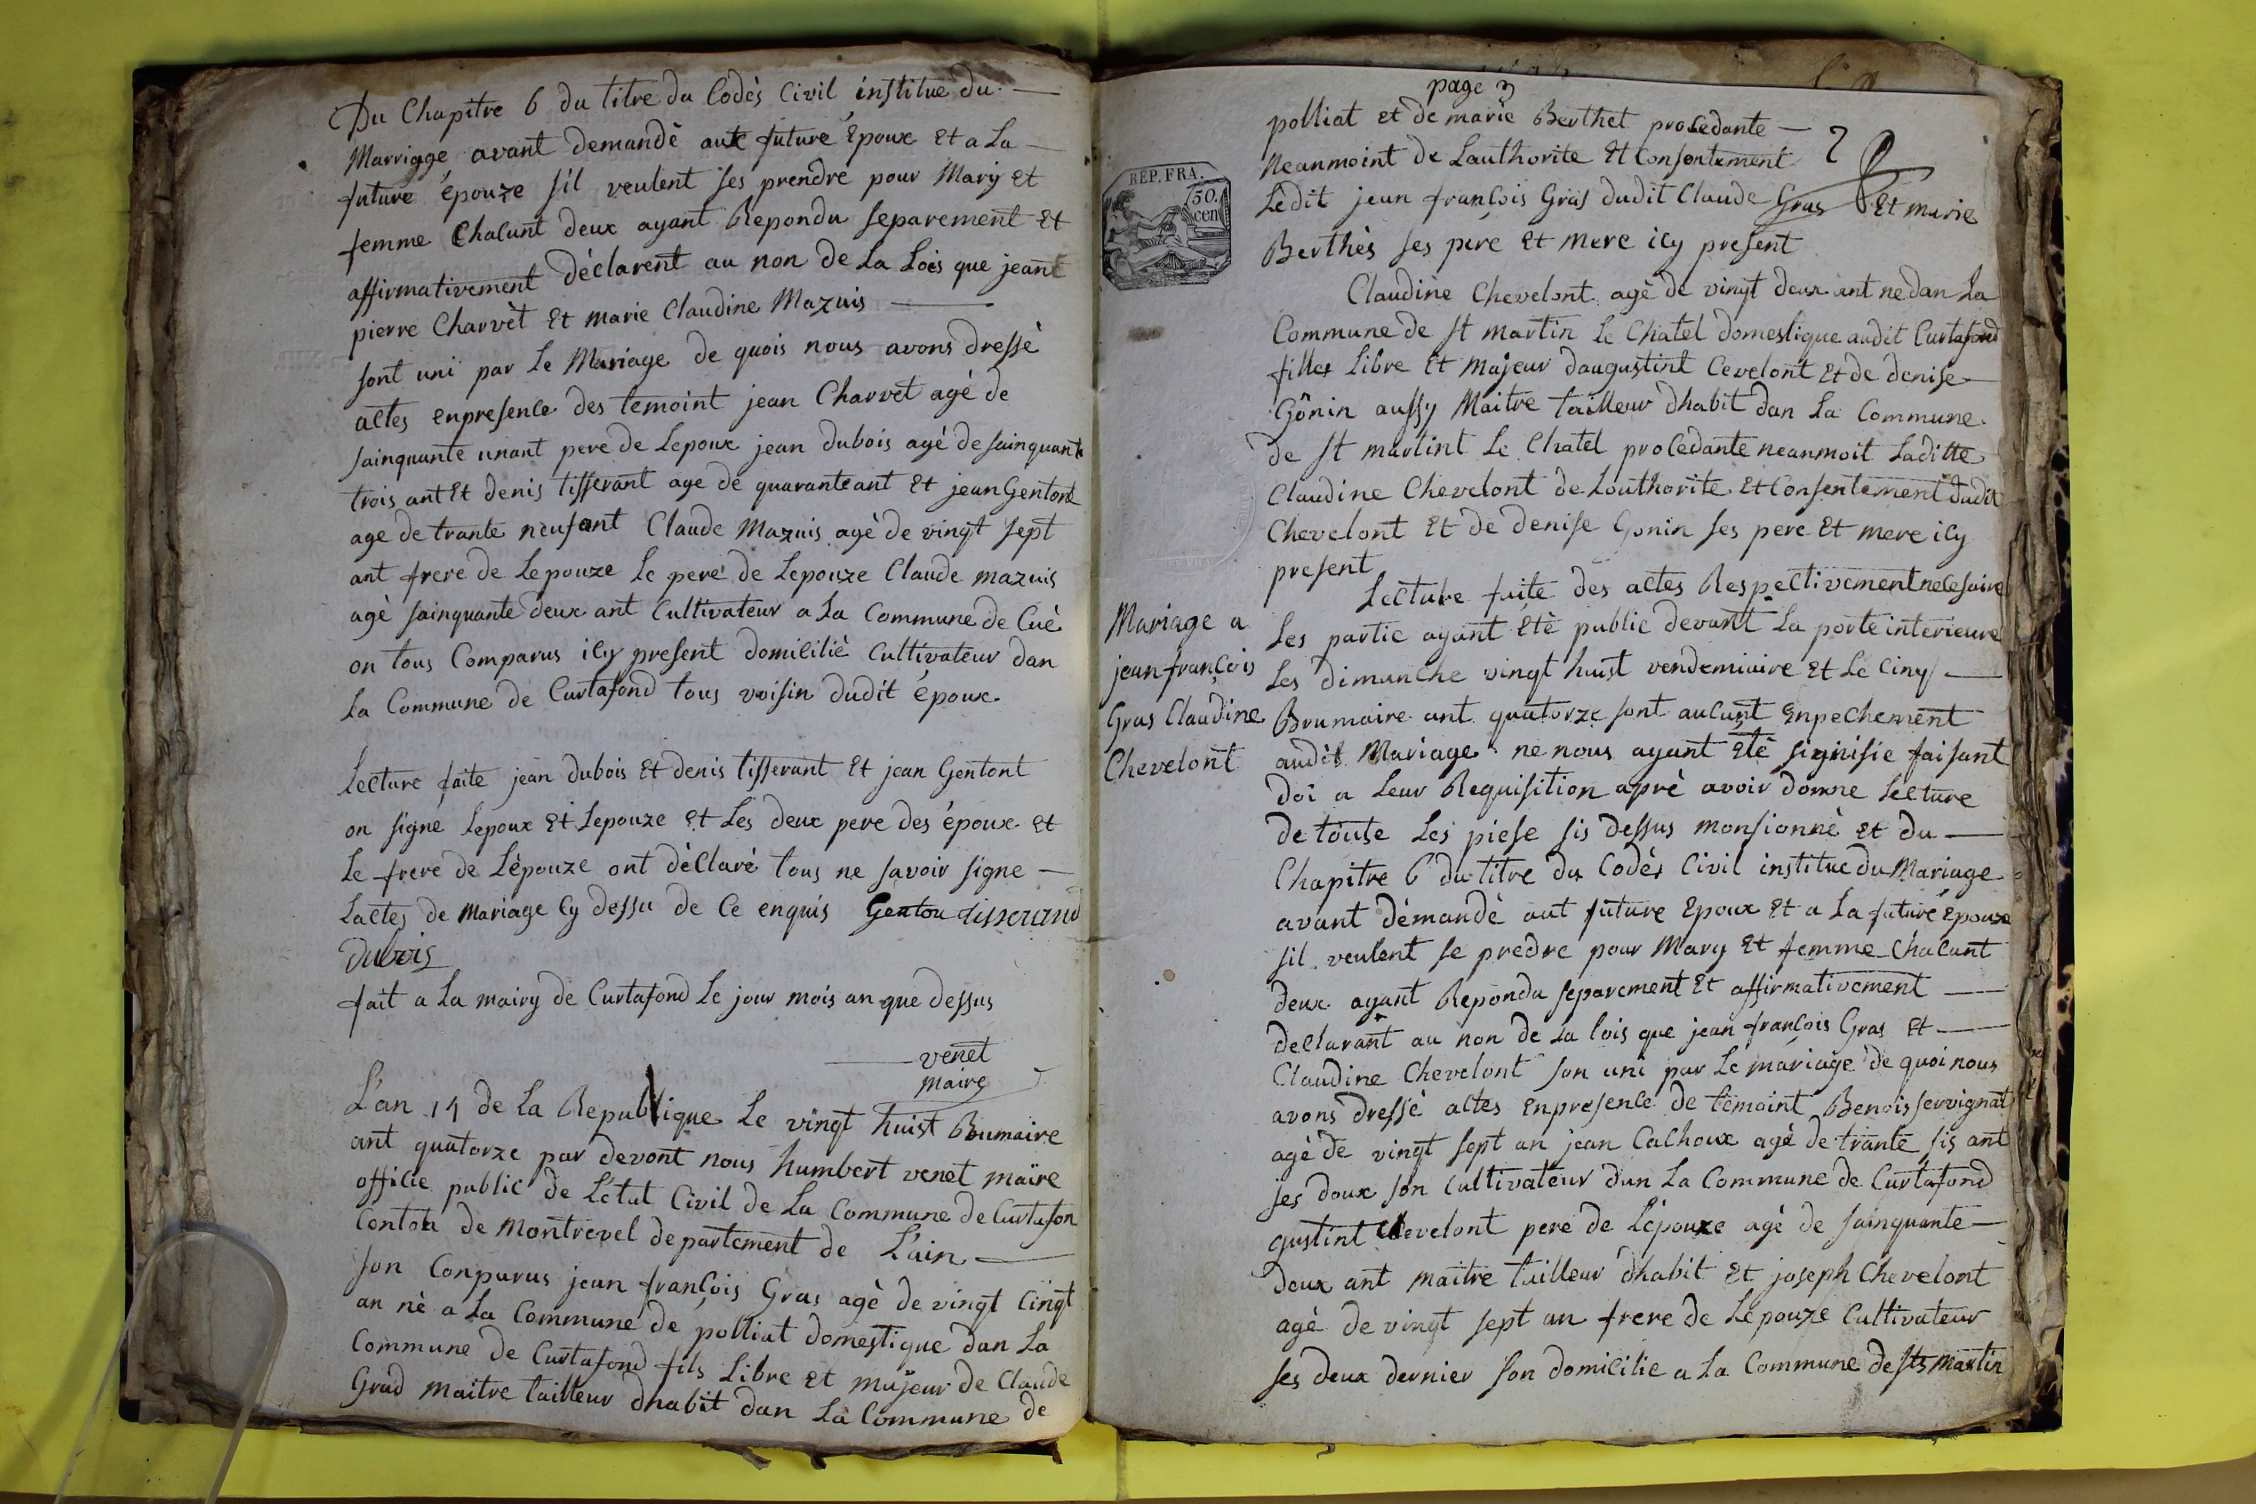 Du Chapitre 6 du titre du Codès Civil institue du
Marriage avant demandè aux future Epoux Et a La
future épouze s'il veulent ses prendre pour Mary Et
femme Chacunt deux ayant Repondu separement Et
affirmativement déclarent au non de La Lois que jeant
pierre Charvèt Et marie Claudine Mazuis
sont uni par Le Mariage de quois nous avons dressè
actes enpresence des temoint jean Charvet agè de
sainquante unant pere de Lepoux jean dubois agè de sainquante
trois ant Et denis tisserant age de quaranteant Et jean Gentont
age de trante neufant Claude Mazuis agè de vingt sept
ant frere de Lepouze Le pere de Lepouze Claude mazuis
agè sainquante deux ant Cultivateur a La Commune de Cuè
on tous Comparus icy present domicilié Cultivateur dan
La Commune de Curtafond tous voisin dudit époux
Lecture faite jean dubois Et denis tisserant Et jean Gentont
on signé Lepoux Et Lepouze Et Les deux pere des époux Et
Le frere de Lépouze ont dèclaré tous ne savoir signe
Lactes de Mariage Cy dessu de Ce enquis Gentou tisserand
Dubois
fait a La mairy de Curtafond Le jour mois an que dessus
venet
maire
L'an 14 de La Republique Le vingt huist Brumaire
ant quatorze par devont nous humbert venet maire
officie public de L'etat Civil de La Commune de Curtafon
Conton de Montrevel departement de L'ain
son Conparus jean françois Gras agè de vingt Cinqt
an nè a La Commune de polliat domestique dan La
Commune de Curtafond fils Libre Et majeur de Claude
Grad maitre tailleur dhabit dan La Commune de
page 3
polliat et de marie Berthet procedante
Neanmoint de Lauthorite Et Consentement
REP. FRA.
50.
cen
Ledit jean françois Gras dudit Claude Gras Et marie
Berthès ses pere Et mere icy present
Claudine Chevelont agè de vingt deux ant ne dan La
Commune de st martin Le Chatel domestique audit Curtafond
filles Libre Et Majeur daugustint Cevelont Et de denise
Gônin aussy Maitre tailleur dhabit dan La Commune
de st martint Le Chatel procedante neanmoit Laditte
Claudine Chevelont de Louthorite Et Consentement dudit
Chevelont Et de denise Gonin ses pere Et mere icy
present
Lecture faite des actes Respectivement necesaire
Mariage a
jean françois
Gras Claudine
Chevelont
Les partie ayant étè public devant La porte interieure
Les dimanche vingt huist vendemiaire Et Le Cinq
Brumaire ant quatorze sont aucunt Enpechement
audit Mariage ne nous ayant Etè signifie faisant
doi a Leur Requisition aprè avoir donne Lecture
de toute Les piese sis dessus monsionnè Et du
Chapitre 6 du titre du Codès Civil institue du Mariage
avant démandè aut future Epoux Et a La future Epouze
sil veulent se predre pour Mary Et femme Chacunt
deux ayant Repondu separement Et affirmativement
declarant au non de La lois que jean françois Gras Et
Claudine Chevelont son uni par Le mariage de quoi nous
avons dressè actes Enpresence de témoint Benois servignat
agè de vingt sept an jean Calhoux agé de trante sis ant
ses doux son Cultivateur dan La Commune de Curtafond
gustint Chevelont pere de L'épouze agè de sainquante
deux ant maitre tailleur dhabit Et joseph Chevelont
agè de vingt sept an frere de Lépouze Cultivateur
ses deux dernier son domicilie a La Commune de st martin